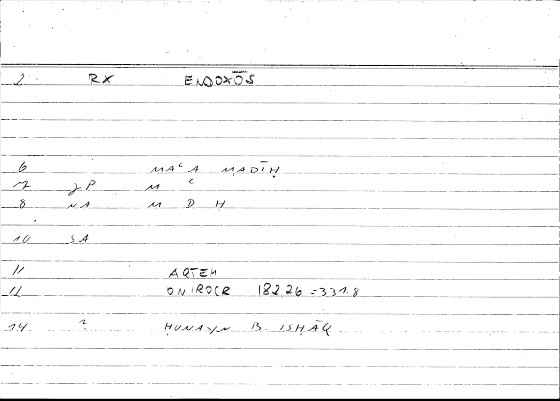 2 RX ENDOXŌS
6 MAᶜA MADĪḤ
7 JP M ᶜ
8 NA M D Ḥ
10 SA
11 ARTEM
12 ONIROCR 182,26 = 331.8
14 ? ḤUNAYN B. ISḤĀQ